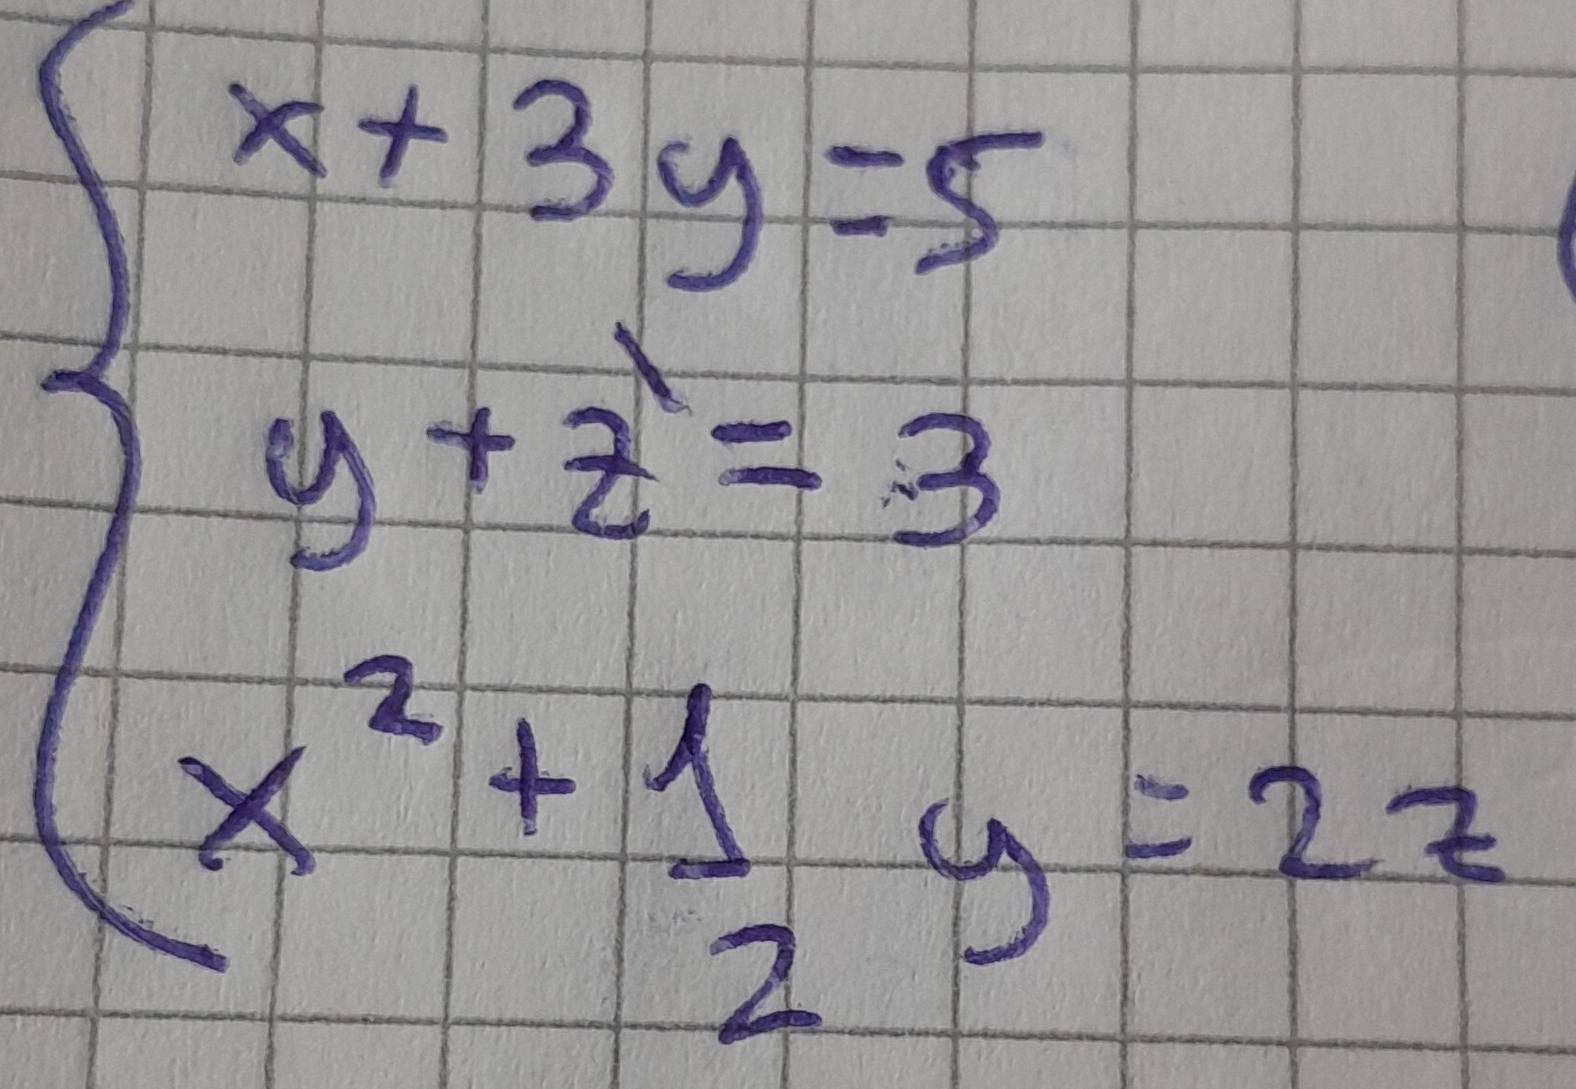 x + 3y = 5
y + z` = 3
x² + 1/2 y = 2z